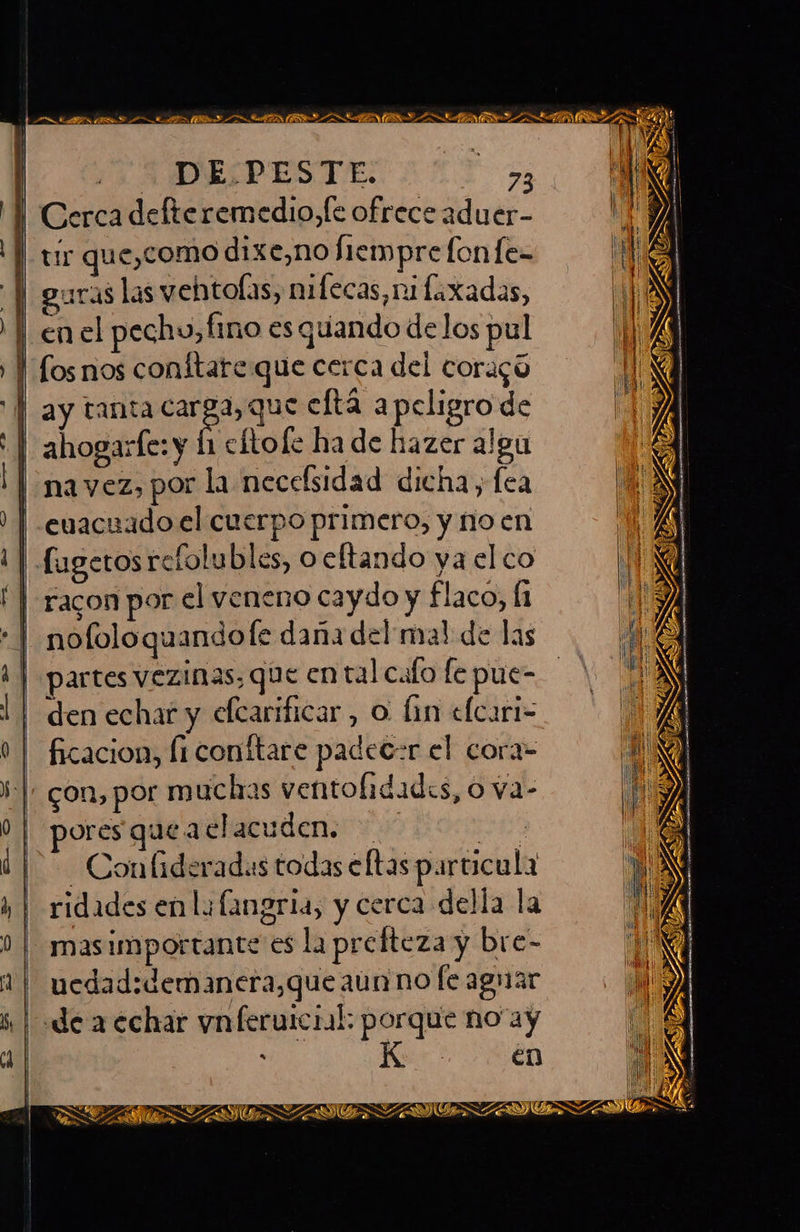 DE PESTE. 73
Cerca deſte remedio,ſe ofrece aduer-
tir que,como dixe,no ſiempre ſon ſe-
guras las ventoſas, ni ſecas,ni ſaxadas,
en el pecho,ſino es quando de los pul
ſos nos conſtare que cerca del coraçõ
ay tanta carga,que eſtá a peligro de
ahogarſe:y ſi eſto ſe ha de hazer algu
na vez, por la neceſsidad dicha, ſea
euacuado el cuerpo primero, y no en
ſugetos reſolubles, o eſtando ya el co
raçon por el veneno caydo y flaco, ſi
no ſolo quando ſe daña del mal de las
partes vezinas, que en tal caſo ſe pue-
den echar y eſcarificar, o ſin eſcari-
ficacion, ſi conſtare padecer el cora-
çon, por muchas ventoſidades, o va-
pores que a el acuden.
Conſideradas todas eſtas particula
ridades en la ſangria, y cerca della la
mas importante es la preſteza y bre-
uedad:demanera,que aun no ſe aguar
de a echar vn ſeruicial: porque no ay
K en